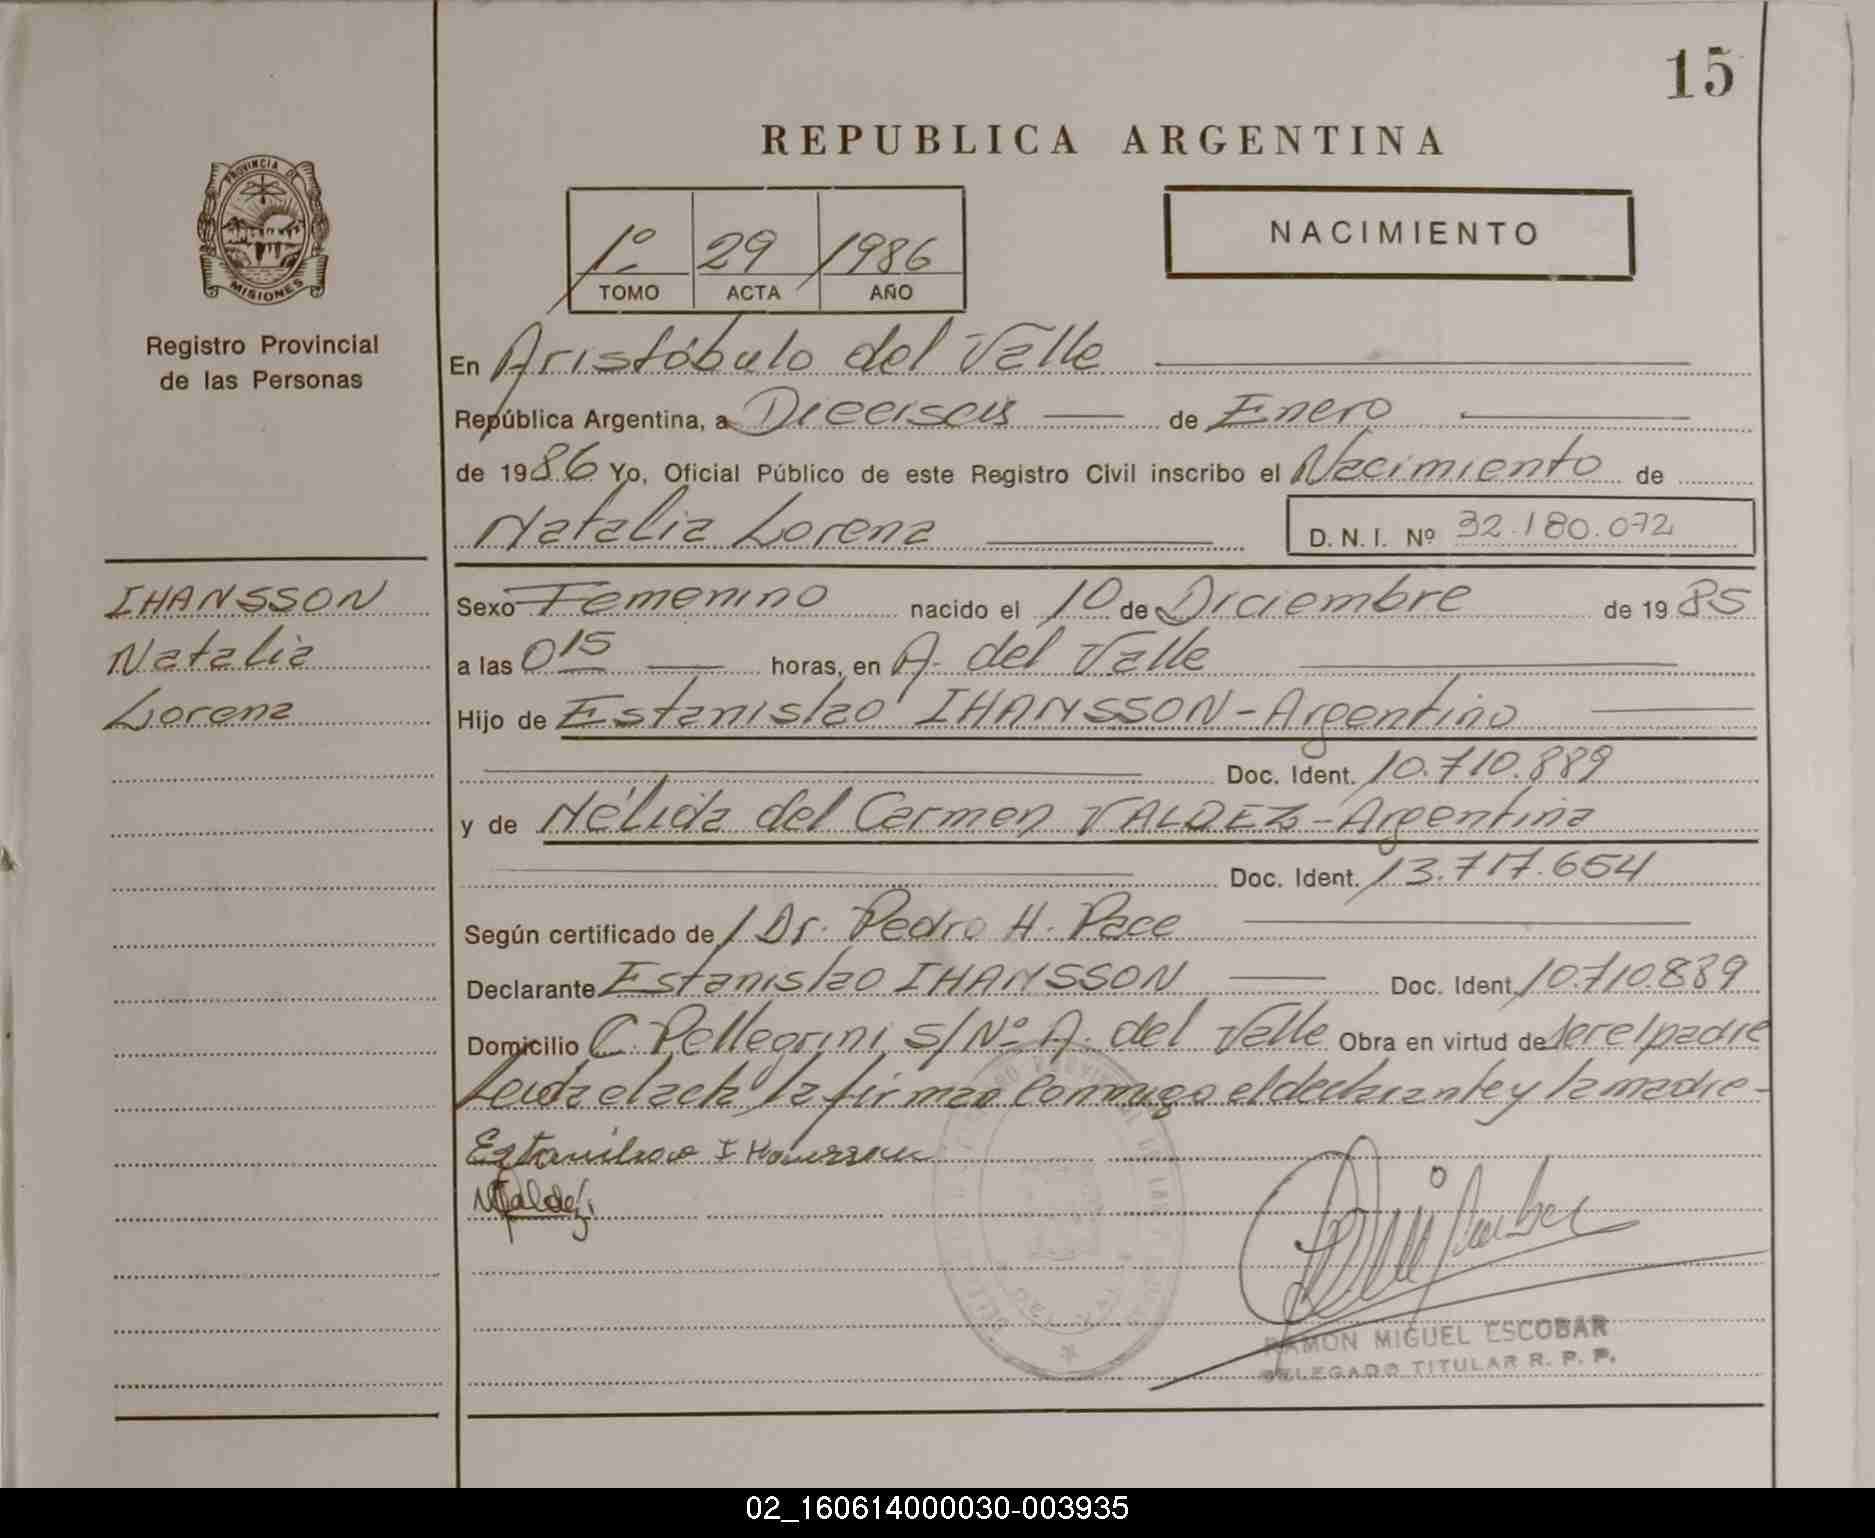 15
REPUBLICA ARGENTINA
PROVINCIA DE
MISIONES
Registro Provincial
de las Personas
1º 29 1986
TOMO ACTA AÑO
NACIMIENTO
En Aristóbulo del Valle
República Argentina, a Dieciseis de Enero
de 1986 Yo, Oficial Público de este Registro Civil inscribo el Nacimiento de
Natalia Lorena
D. N. I. Nº 32.180.072
IHANSSON
Natalia
Lorena
Sexo Femenino nacido el 10 de Diciembre de 1985
a las 0 15 horas, en A. del Valle
Hijo de Estanislao IHANSSON - Argentino
Doc. Ident. 10.710.889
y de Nélida del Carmen VALDEZ - Argentina
Doc. Ident. 13.717.654
Según certificado de Dr. Pedro H. Pace
Declarante Estanislao IHANSSON Doc. Ident. 10.710.889
Domicilio C. Pellegrini s/Nº A. del Valle Obra en virtud de ser el padre
Leida el acta la firman conmigo el declarante y la madre -
Estanislao Ihansson
Valdéz
RAMON MIGUEL ESCOBAR
DELEGADO TITULAR R. P. P.
02_160614000030-003935